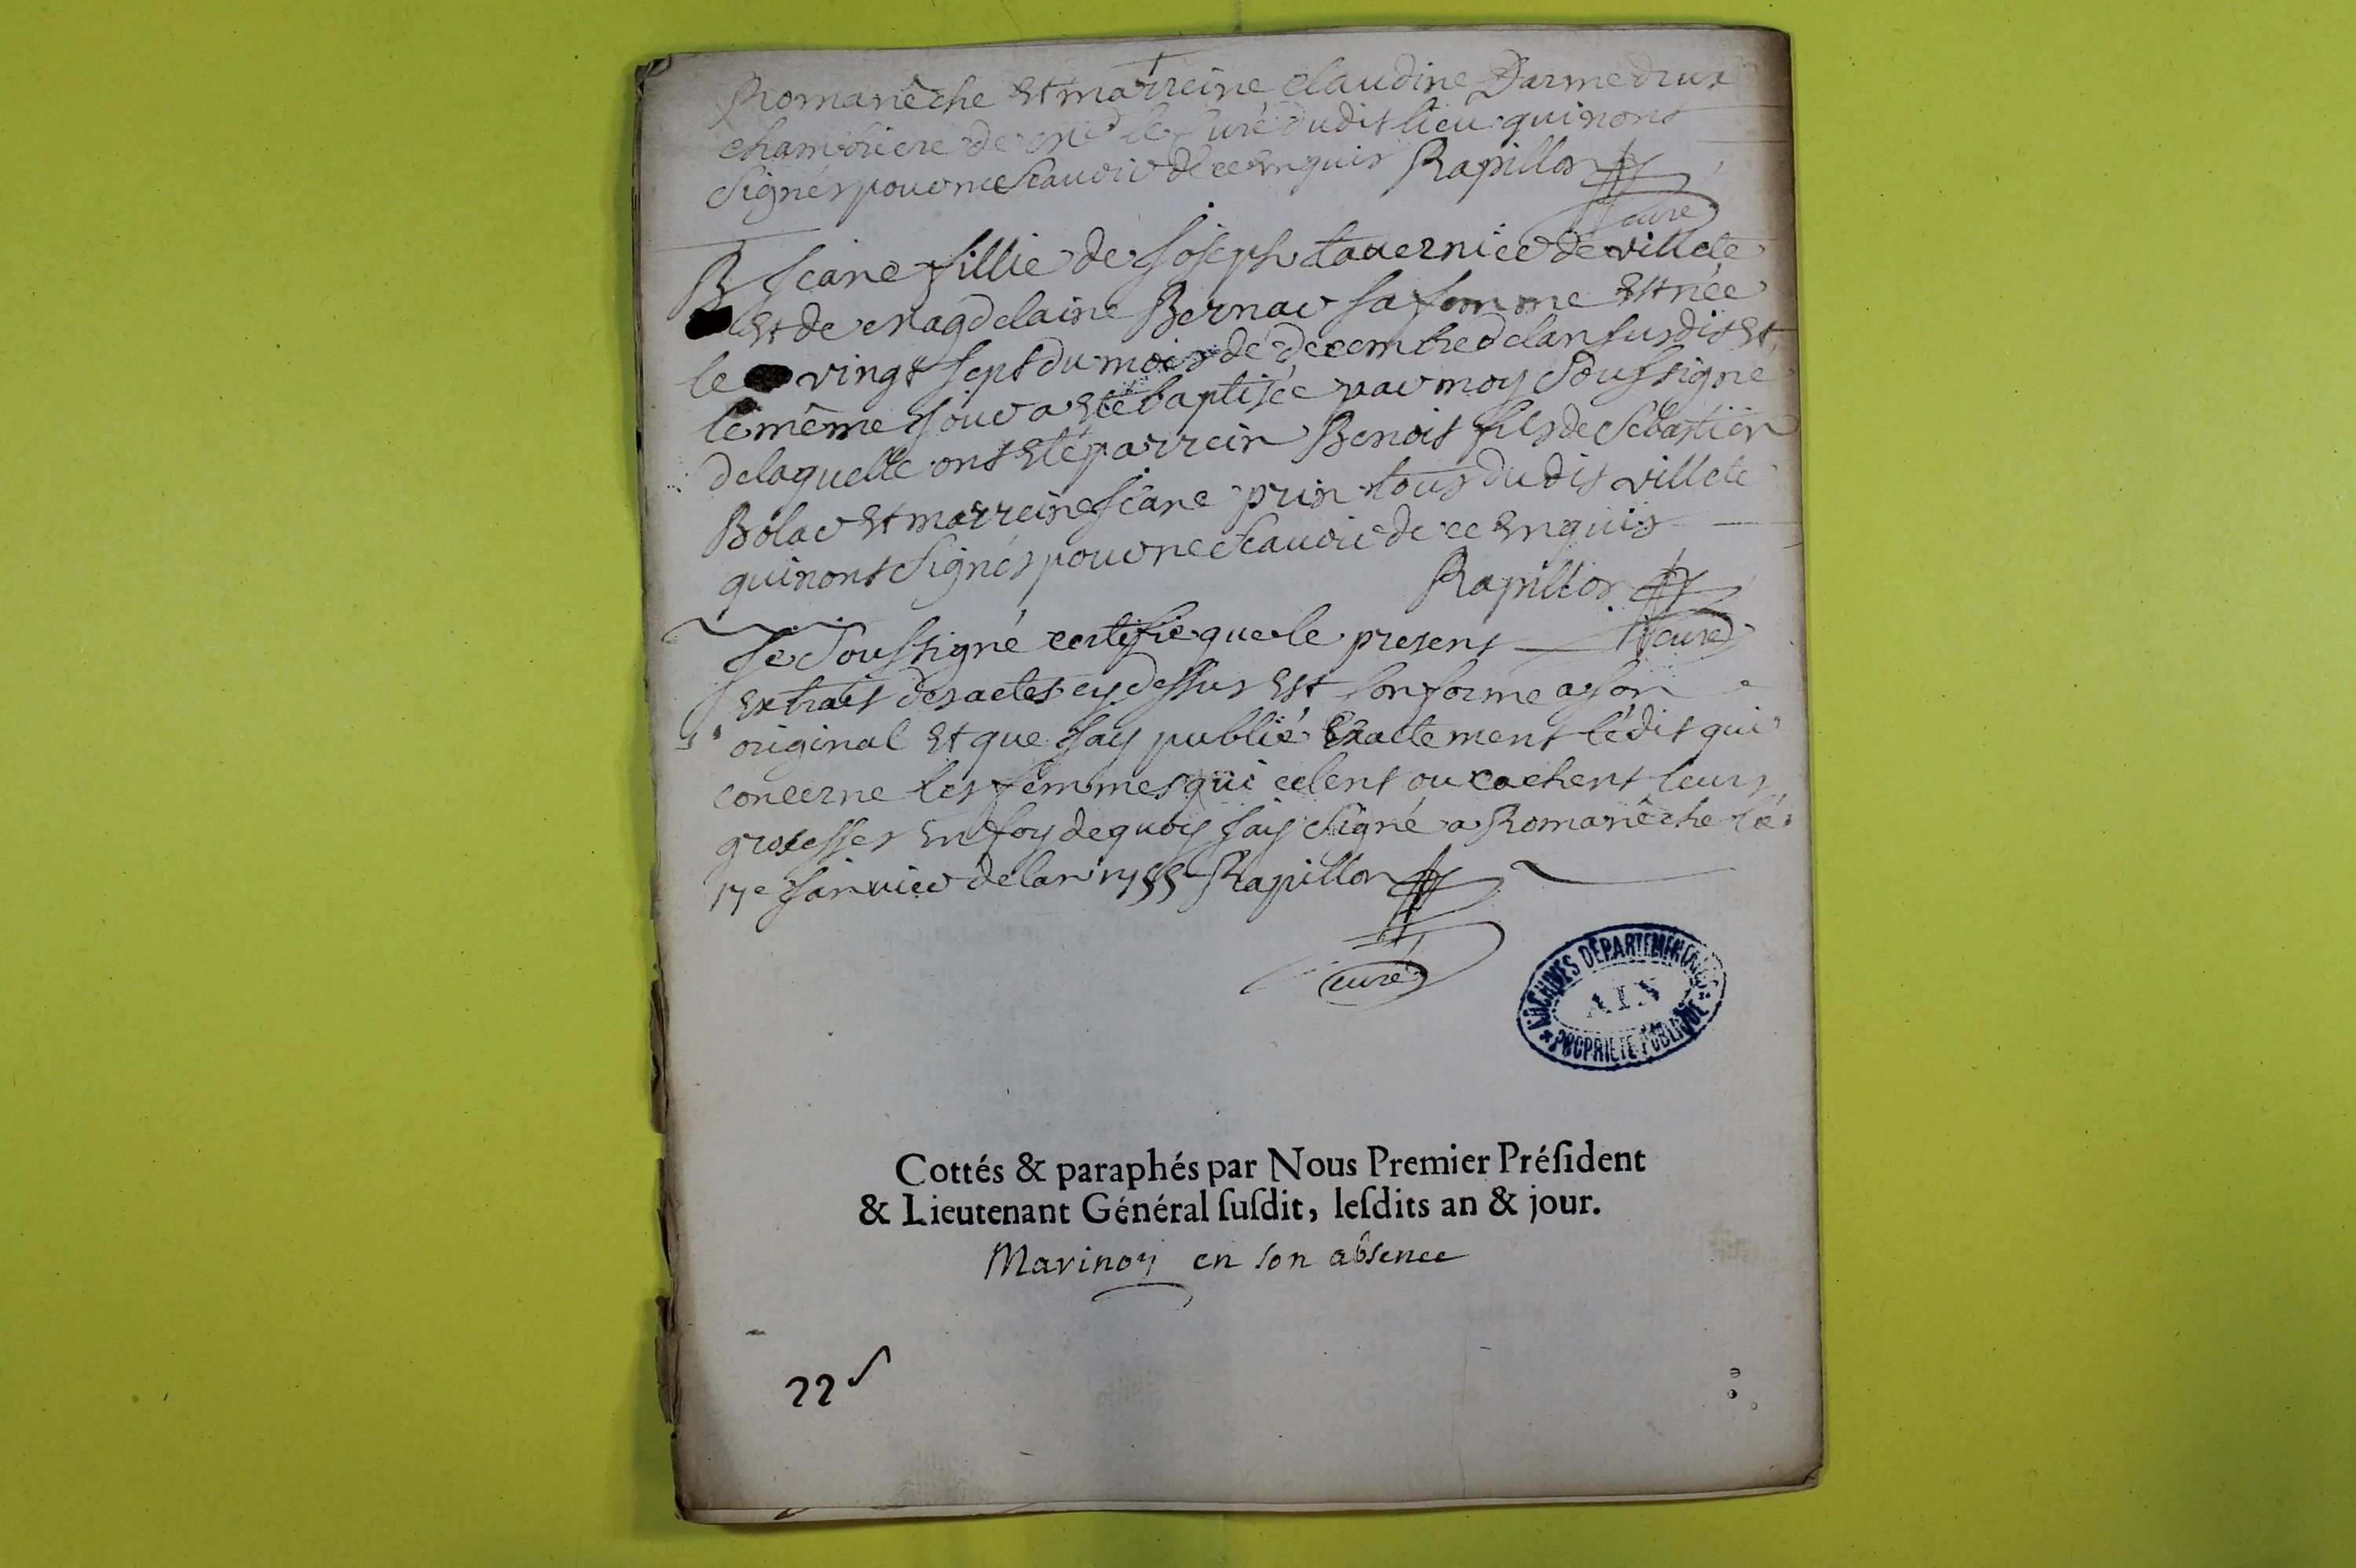 Romanêche Et marreine claudine Darmedrux
chambriere de mr le Curé dudit lieu qui nont
Signés pour ne Scauoir de ce Enquis Rapillon
curé
B Jeane fillie de Joseph tauernier de villete
Et de magdelaine Bernar sa femme Est née
le vingt sept du mois de decembre de lan susdit Et
le même jour a Eté baptisée par moy Soussigné
de laquelle ont Eté parrein Benoit fils de Sebastien
Bolar Et marreine Jeane prin tous dudit villete
qui nont Signés pour ne Scauoir de ce Enquis
Rapillon
curé
Je Soussigné certifie que le present
Extrait des actes cy dessus Est Conforme a son
original Et que Jay publié Exactement lédit qui
concerne les femmes qui celent ou cachent leurs
grosesses En foy de quoy Jay Signé a Romanêche le
17e Janvier de lan 1755 Rapillon
curé
ARCHIVES DÉPARTEMENTALES
AIN
PROPRIÉTÉ PUBLIQUE
Cottés & paraphés par Nous Premier Préſident
& Lieutenant Général ſuſdit, leſdits an & jour.
Marinon en son absence
22